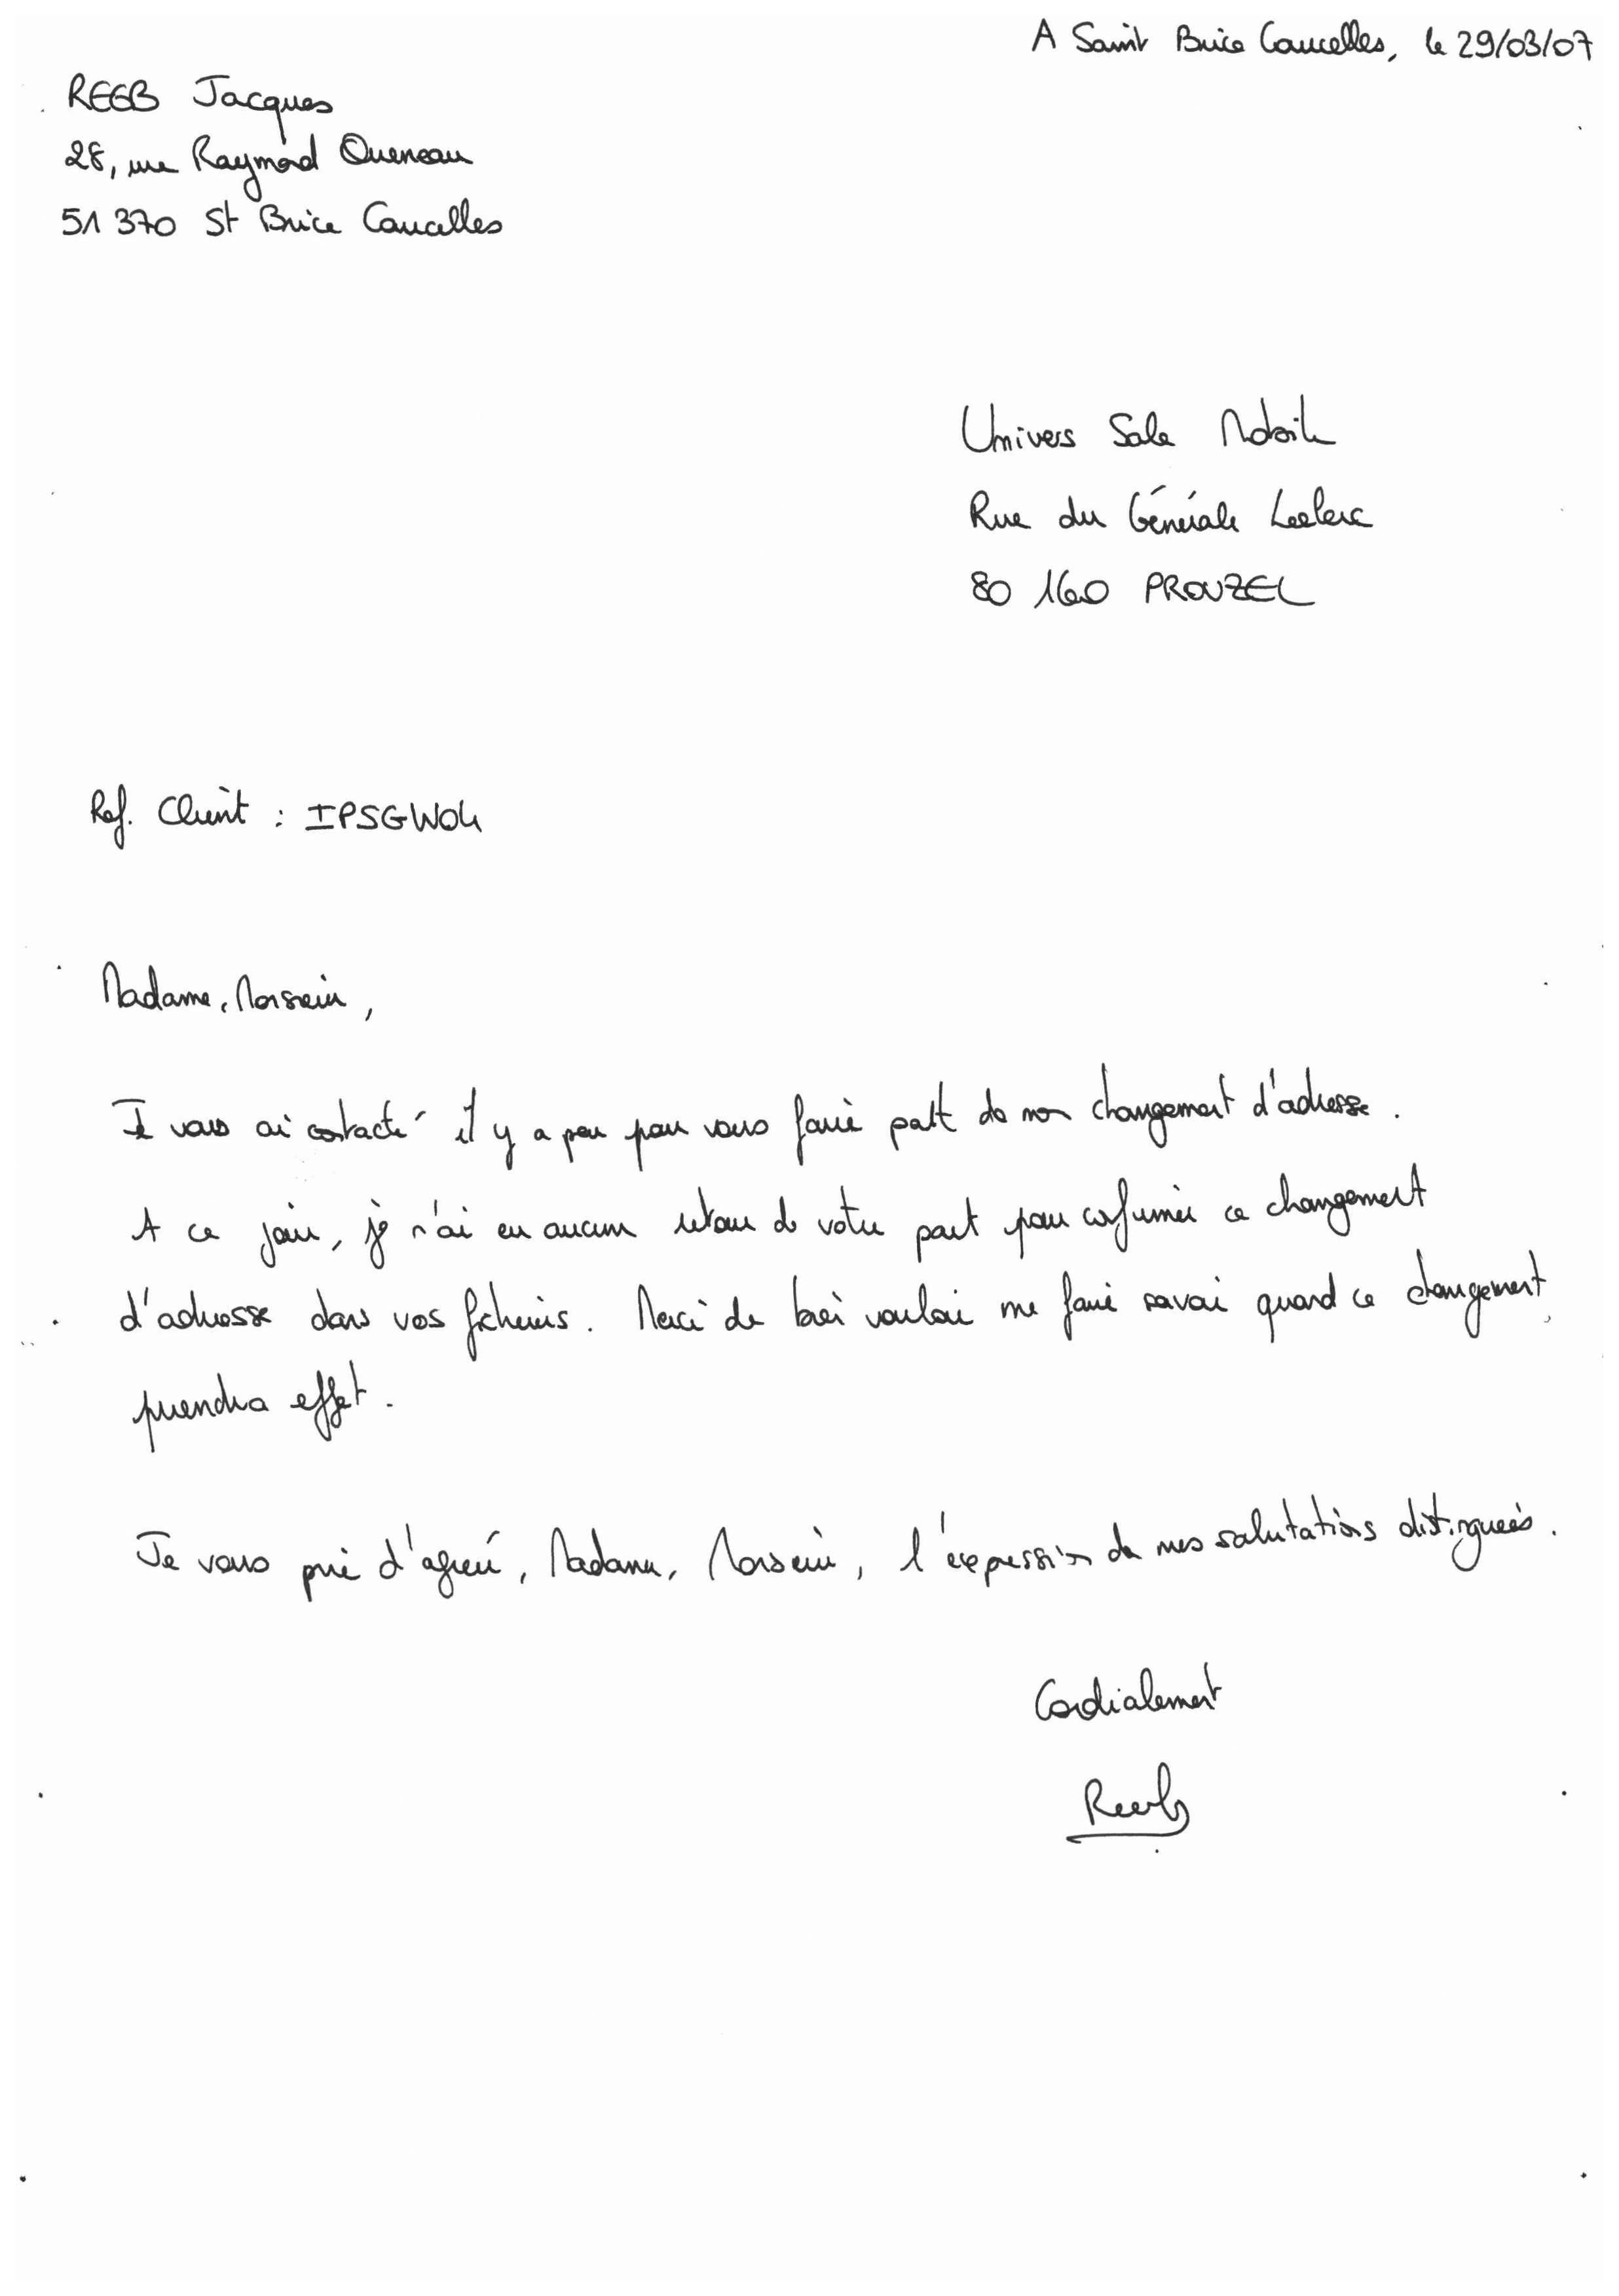 A Saint Brice Courcelles, le 29/03/07
REGB Jacques
28, rue Raymond Queneau
51 370 St Brice Courcelles
Univers Sale Mobile
Rue du Générale Leclerc
80 160 PROUZEL
Ref. Client : IPSGW04
Madame, Monsieur,
Je vous ai contacté il y a peu pour vous faire part de mon changement d'adresse.
A ce jour, je n'ai eu aucun retour de votre part pour confirmer ce changement
d'adresse dans vos fichiers. Merci de bien vouloir me faire savoir quand ce changement
prendra effet.
Je vous prie d'agréer, Madame, Monsieur, l'expression de mes salutations distinguées.
Cordialement